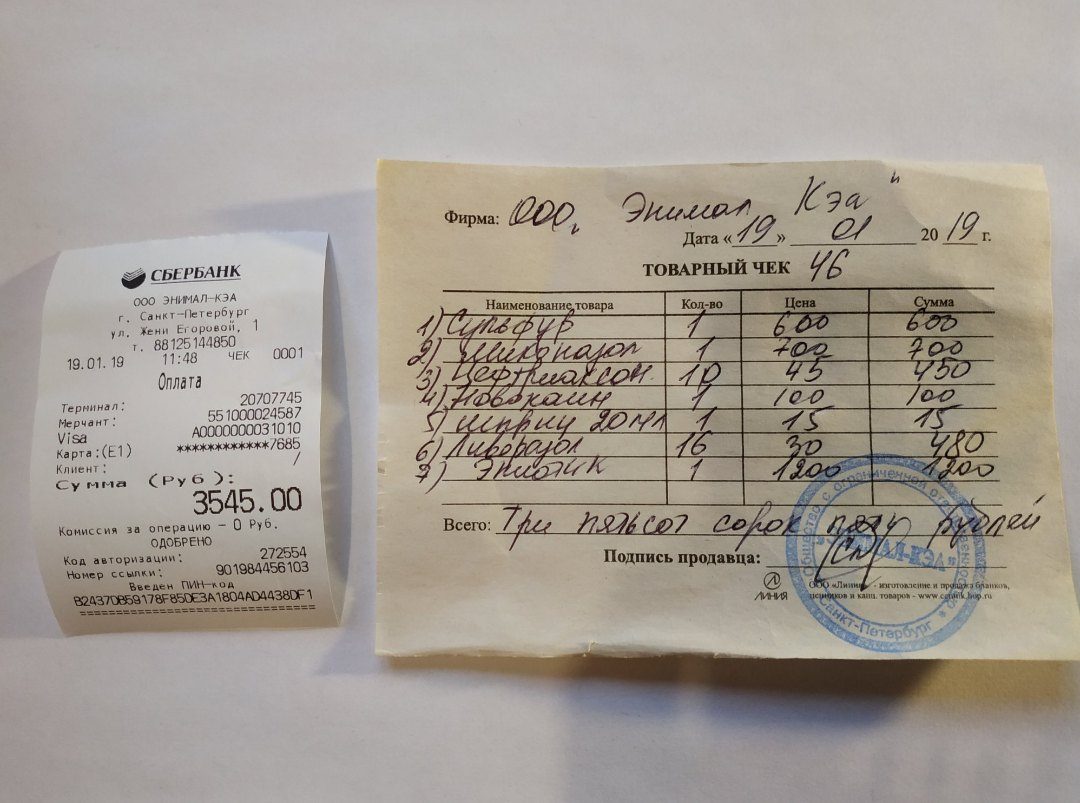 СБЕРБАНК
ООО ЭНИМАЛ-КЭА
г. Санкт-Петербург
ул. Жени Егоровой, 1
т. 88125144850
19.01.19 11:48 ЧЕК 0001
Оплата
Терминал: 20707745
Мерчант: 551000024587
Visa A0000000031010
Карта:(E1) ************7685
Клиент: /
Сумма (Руб):
3545.00
Комиссия за операцию – 0 Руб.
ОДОБРЕНО
Код авторизации: 272554
Номер ссылки: 901984456103
Введен ПИН-код
B2437DB59178F85DE3A1804AD4438DF1
==============================
Фирма: ООО „ Энимал Кэа "
Дата «19» 01 2019 г.
ТОВАРНЫЙ ЧЕК 46
Наименование товара Кол-во Цена Сумма
1) Сульфур 1 600 600
2) Миконазол 1 700 700
3) Цефтриаксон 10 45 450
4) Новокаин 1 100 100
5) шприц 20 мл 1 15 15
6) Ливердол 16 30 480
7) Энротик 1 1200 1200
Всего: Три пятьсот сорок пять рублей
Подпись продавца:
ЛИНИЯ
ООО «Линия» - изготовление и продажа бланков,
ценников и канц. товаров -
Общество с ограниченной ответственностью
АЛ-КЭА"
* Санкт-Петербург *